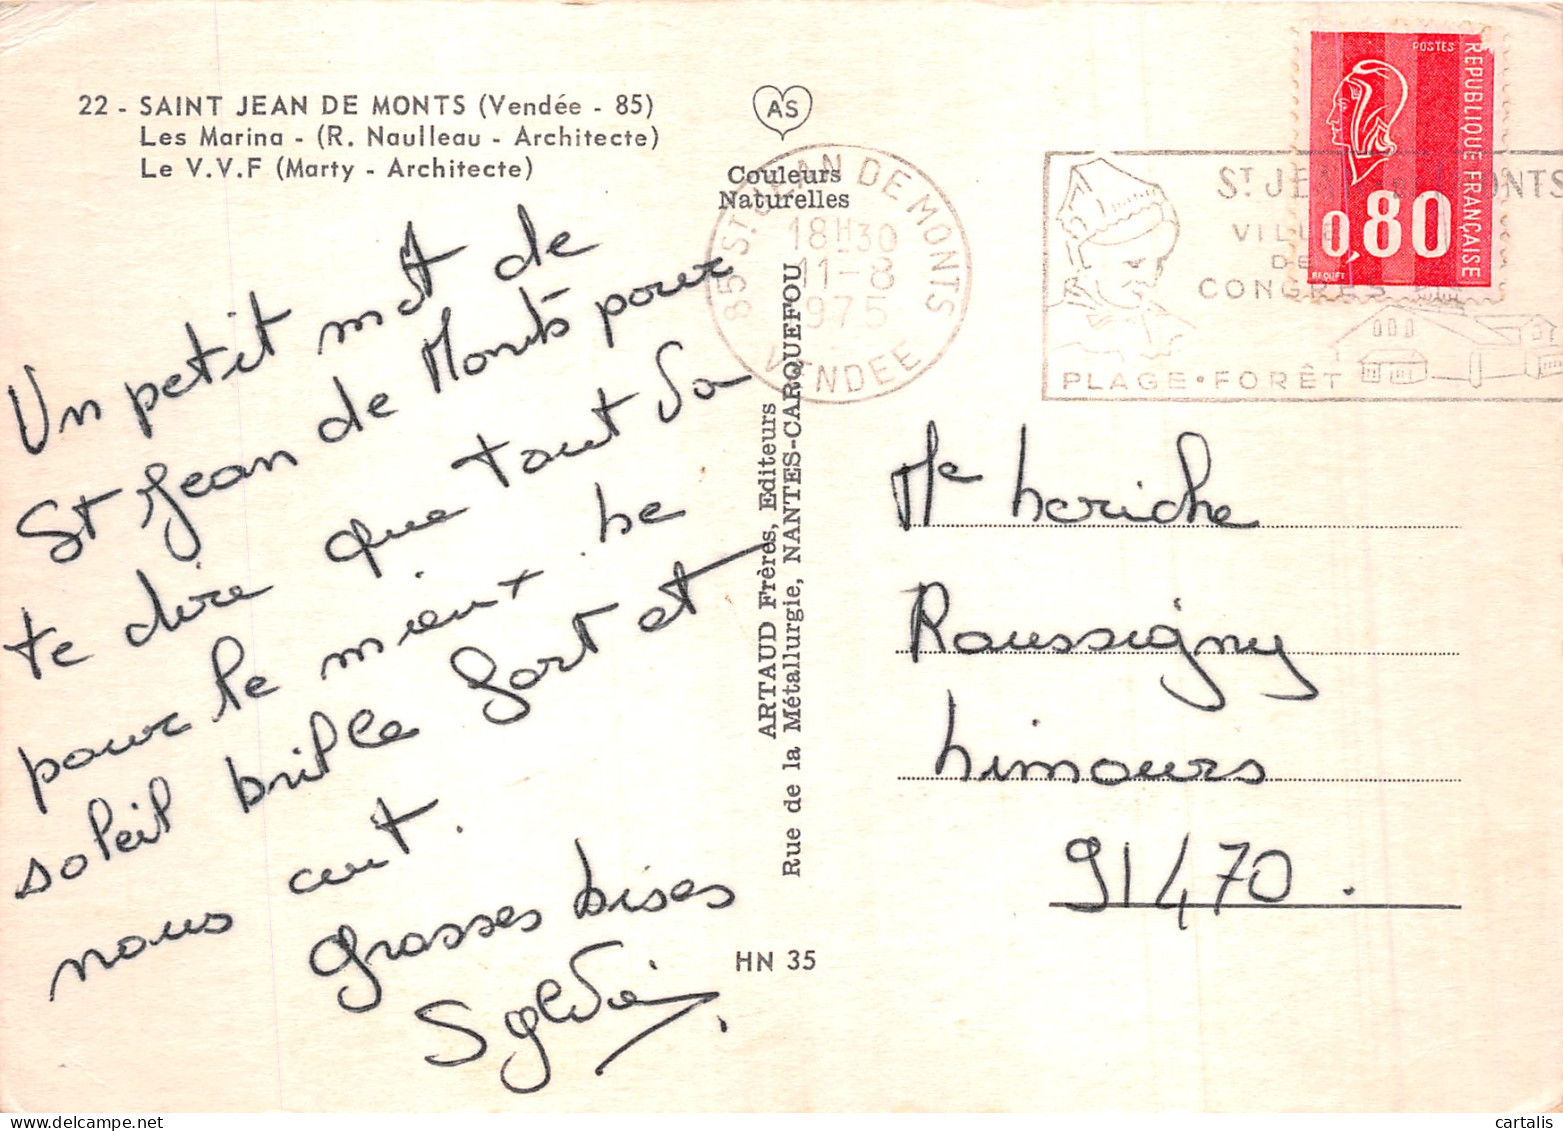 22 - SAINT JEAN DE MONTS (Vendée - 85)
Les Marina - (R. Naulleau - Architecte)
Le V.V.F (Marty - Architecte)
AS
Couleurs
Naturelles
85 ST JEAN DE MONTS
18H30
11-8
1975
VENDEE
ST JEAN DE MONTS
VILLE
DE
CONGRES
PLAGE • FORÊT
POSTES
REPUBLIQUE FRANÇAISE
0,80
BEQUET
Un petit mot de
St Jean de Monts pour
te dire que tout va
pour le mieux. Le
soleil brille fort et
nous cuit.
Grosses bises
Sylvie
ARTAUD Frères, Editeurs
Rue de la Métallurgie, NANTES-CARQUEFOU
HN 35
Me Loriche
Roussigny
Limours
91470.
cartalis
www.delcampe.net